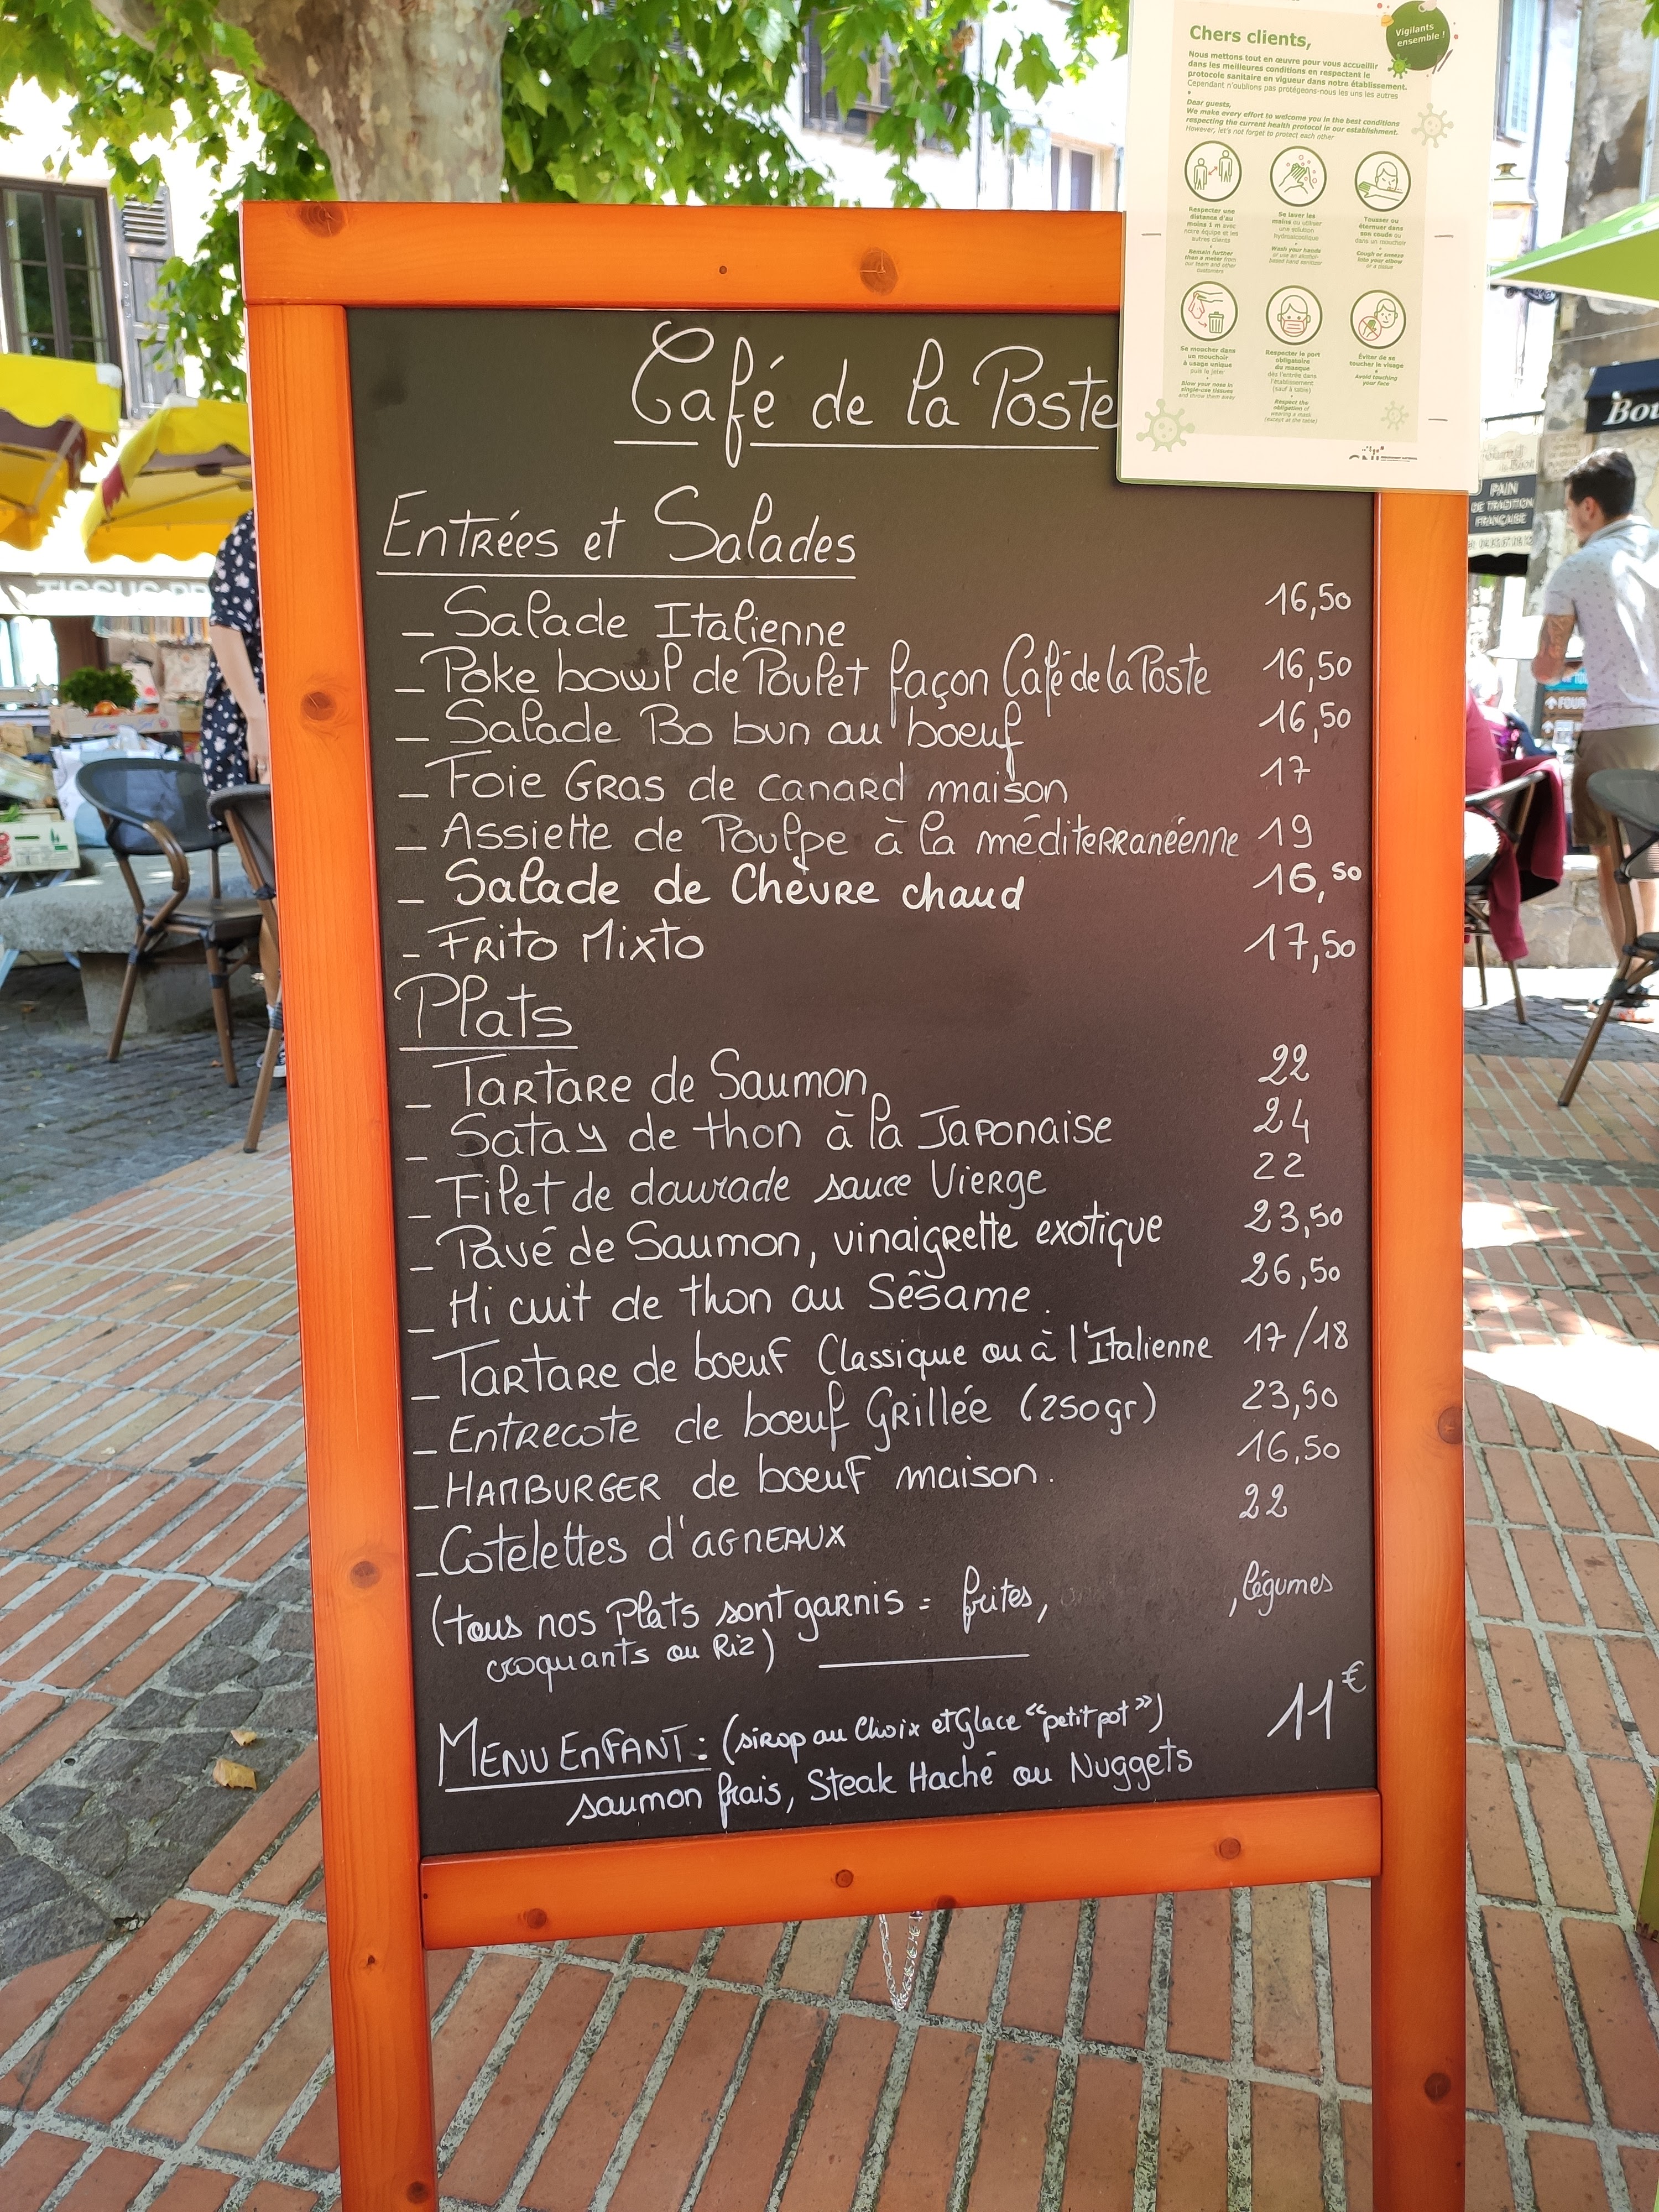 Chers clients,
Vigilants
ensemble !
Nous mettons tout en œuvre pour vous accueillir
dans les meilleures conditions en respectant le
protocole sanitaire en vigueur dans notre établissement.
Cependant n'oublions pas protégeons-nous les uns les autres
Dear guests,
We make every effort to welcome you in the best conditions
respecting the current health protocol in our establishment.
However, let's not forget to protect each other
Respecter une
distance d'au
moins 1 m avec
notre équipe et les
autres clients
Remain further
than a meter from
our team and other
customers
Se laver les
mains ou utiliser
une solution
hydroalcoolique
Wash your hands
or use an alcohol-
based hand sanitizer
Tousser ou
éternuer dans
son coude ou
dans un mouchoir
Cough or sneeze
into your elbow
or a tissue
Se moucher dans
un mouchoir
à usage unique
puis le jeter
Blow your nose in
single-use tissues
and throw them away
Respecter le port
obligatoire
du masque
dès l'entrée dans
l'établissement
(sauf à table)
Respect the
obligation of
wearing a mask
(except at the table)
Éviter de se
toucher le visage
Avoid touching
your face
Café de la Poste
Entrées et Salades
_ Salade Italienne 16,50
_ Poke bowl de Poulet façon Café de la Poste 16,50
_ Salade Bo bun au boeuf 16,50
_ Foie Gras de canard maison 17
_ Assiette de Poulpe à la méditerranéenne 19
_ Salade de Chèvre chaud 16,50
- Frito Mixto 17,50
Plats
_ Tartare de Saumon 22
_ Satay de thon à la Japonaise 24
_ Filet de daurade sauce Vierge 22
_ Pavé de Saumon, vinaigrette exotique 23,50
_ Mi cuit de thon au Sésame. 26,50
_ Tartare de boeuf Classique ou à l'Italienne 17/18
_ Entrecote de boeuf Grillée (250gr) 23,50
_ HAMBURGER de boeuf maison. 16,50
_ Cotelettes d'agneaux 22
(tous nos Plats sont garnis = frites, , légumes
croquants ou Riz)
Menu Enfant : (sirop au Choix et Glace "petit pot") 11€
saumon frais, Steak Haché ou Nuggets
Bou
PAIN
DE TRADITION
FRANÇAISE
TISSUS